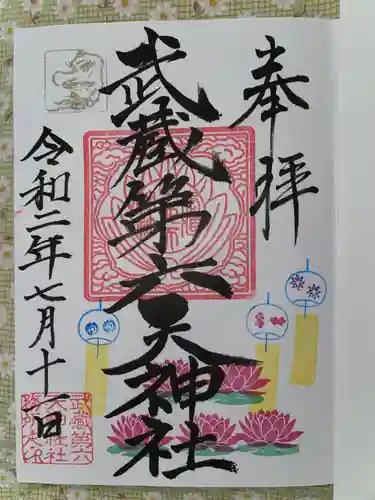 奉拝
武蔵第六天神社
令和二年七月十一日
武蔵第六
天神社社
務所之印